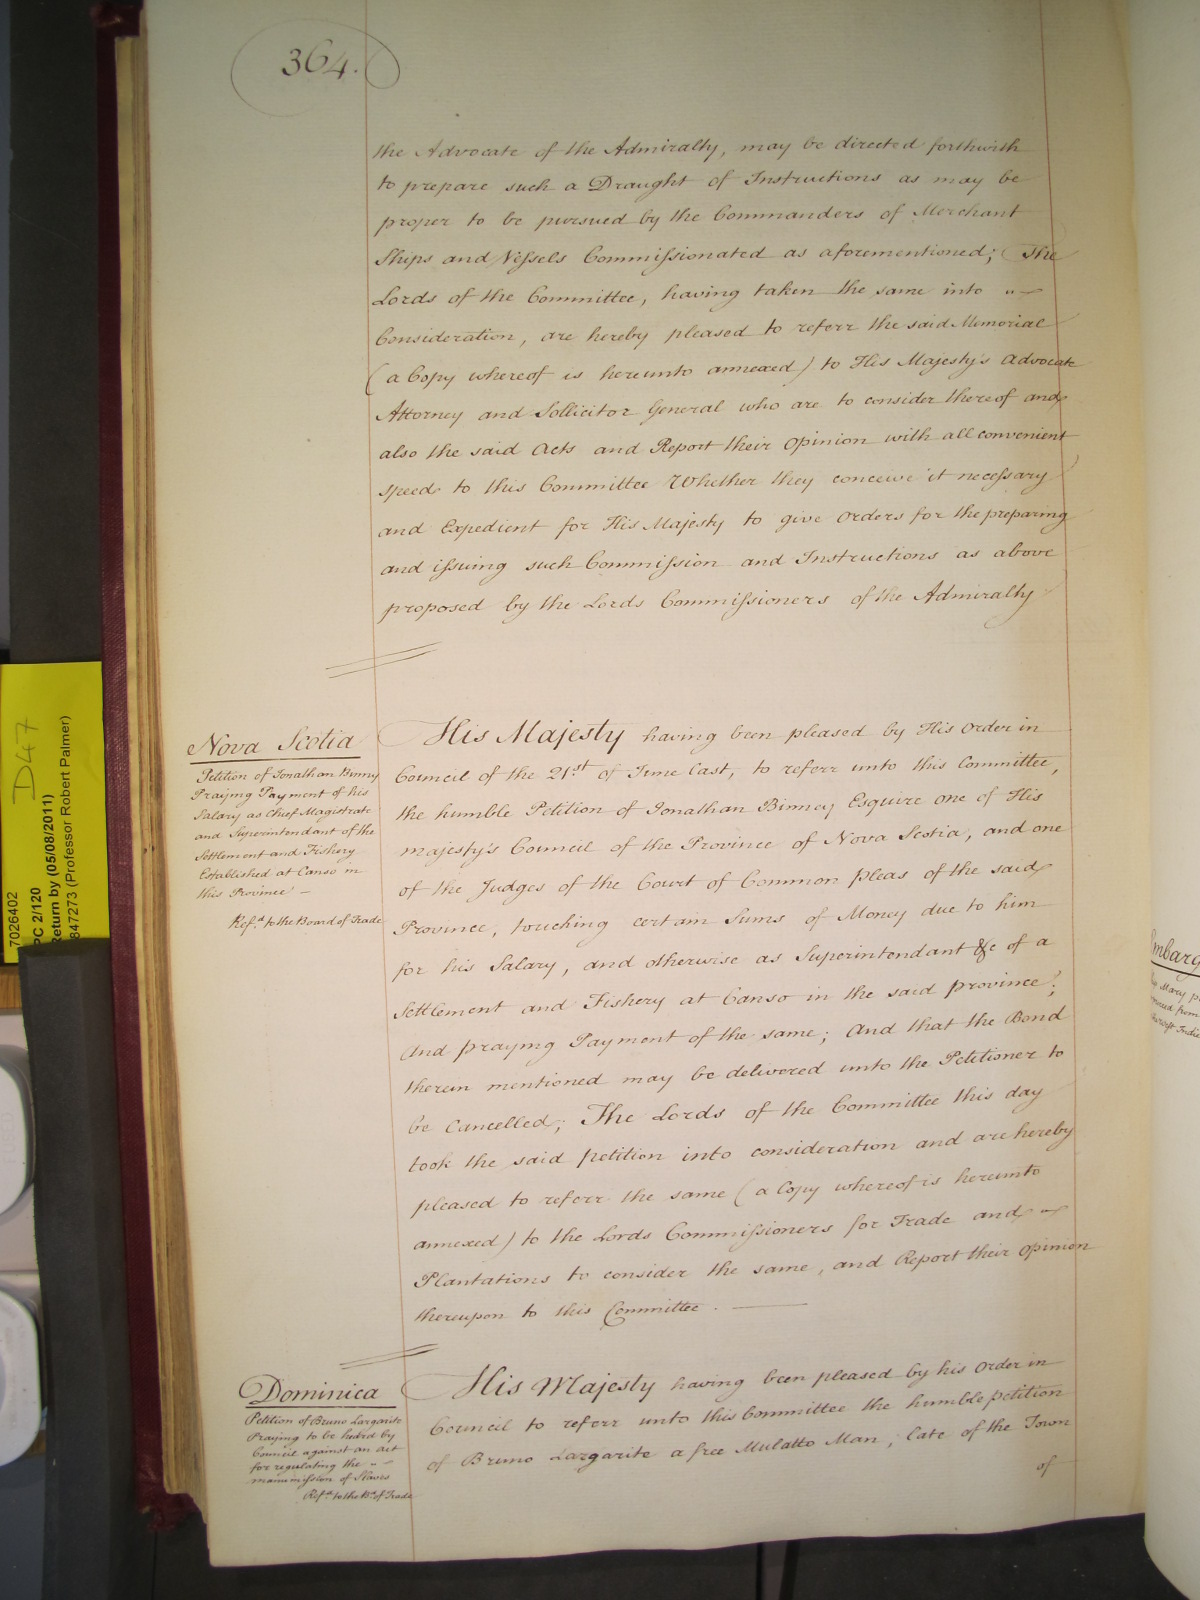 364.
the Advocate of the Admiralty, may be directed forthwith
to prepare such a Draught of Instructions as may be
proper to be pursued by the Commanders of Merchant
Ships and Vessels Commissionated as aforementioned; The
Lords of the Committee, having taken the same into
Consideration, are hereby pleased to referr the said Memorial
(a Copy whereof is hereunto annexed) to His Majesty's Advocate
Attorney and Sollicitor General who are to consider thereof and
also the said Acts and Report their Opinion with all convenient
speed to this Committee Whether they conceive it necessary
and Expedient for His Majesty to give Orders for the preparing
and issuing such Commission and Instructions as above
proposed by the Lords Commissioners of the Admiralty
Nova Scotia
Petition of Jonathan Binny
Praying Payment of his
Salary as Chief Magistrate
and Superintendant of the
Settlement and Fishery
Established at Canso in
this Province –
Ref.d to the Board of Trade
His Majesty having been pleased by His Order in
Council of the 21st of June last, to referr unto this Committee,
the humble Petition of Jonathan Binney Esquire one of His
majesty's Council of the Province of Nova Scotia, and one
of the Judges of the Court of Common pleas of the said
Province, touching certain Sums of Money due to him
for his Salary, and otherwise as Superintendant &c of a
Settlement and Fishery at Canso in the said province;
And praying Payment of the same; And that the Bond
therein mentioned may be delivered unto the Petitioner to
be Cancelled; The Lords of the Committee this day
took the said petition into consideration and are hereby
pleased to referr the same (a Copy whereof is hereunto
annexed) to the Lords Commissioners for Trade and
Plantations to consider the same, and Report their Opinion
thereupon to this Committee.
Dominica
Petition of Bruno Largarite
Praying to be heard by
Council against an act
for regulating the
manumission of Slaves
Ref.d to the B.d of Trade
His Majesty having been pleased by his Order in
Council to referr unto this Committee the humble petition
of Bruno Largarite a free Mulatto Man, late of the Town
of
7026402
PC 2/120
Return by (05/08/2011)
847273 (Professor Robert Palmer)
D47